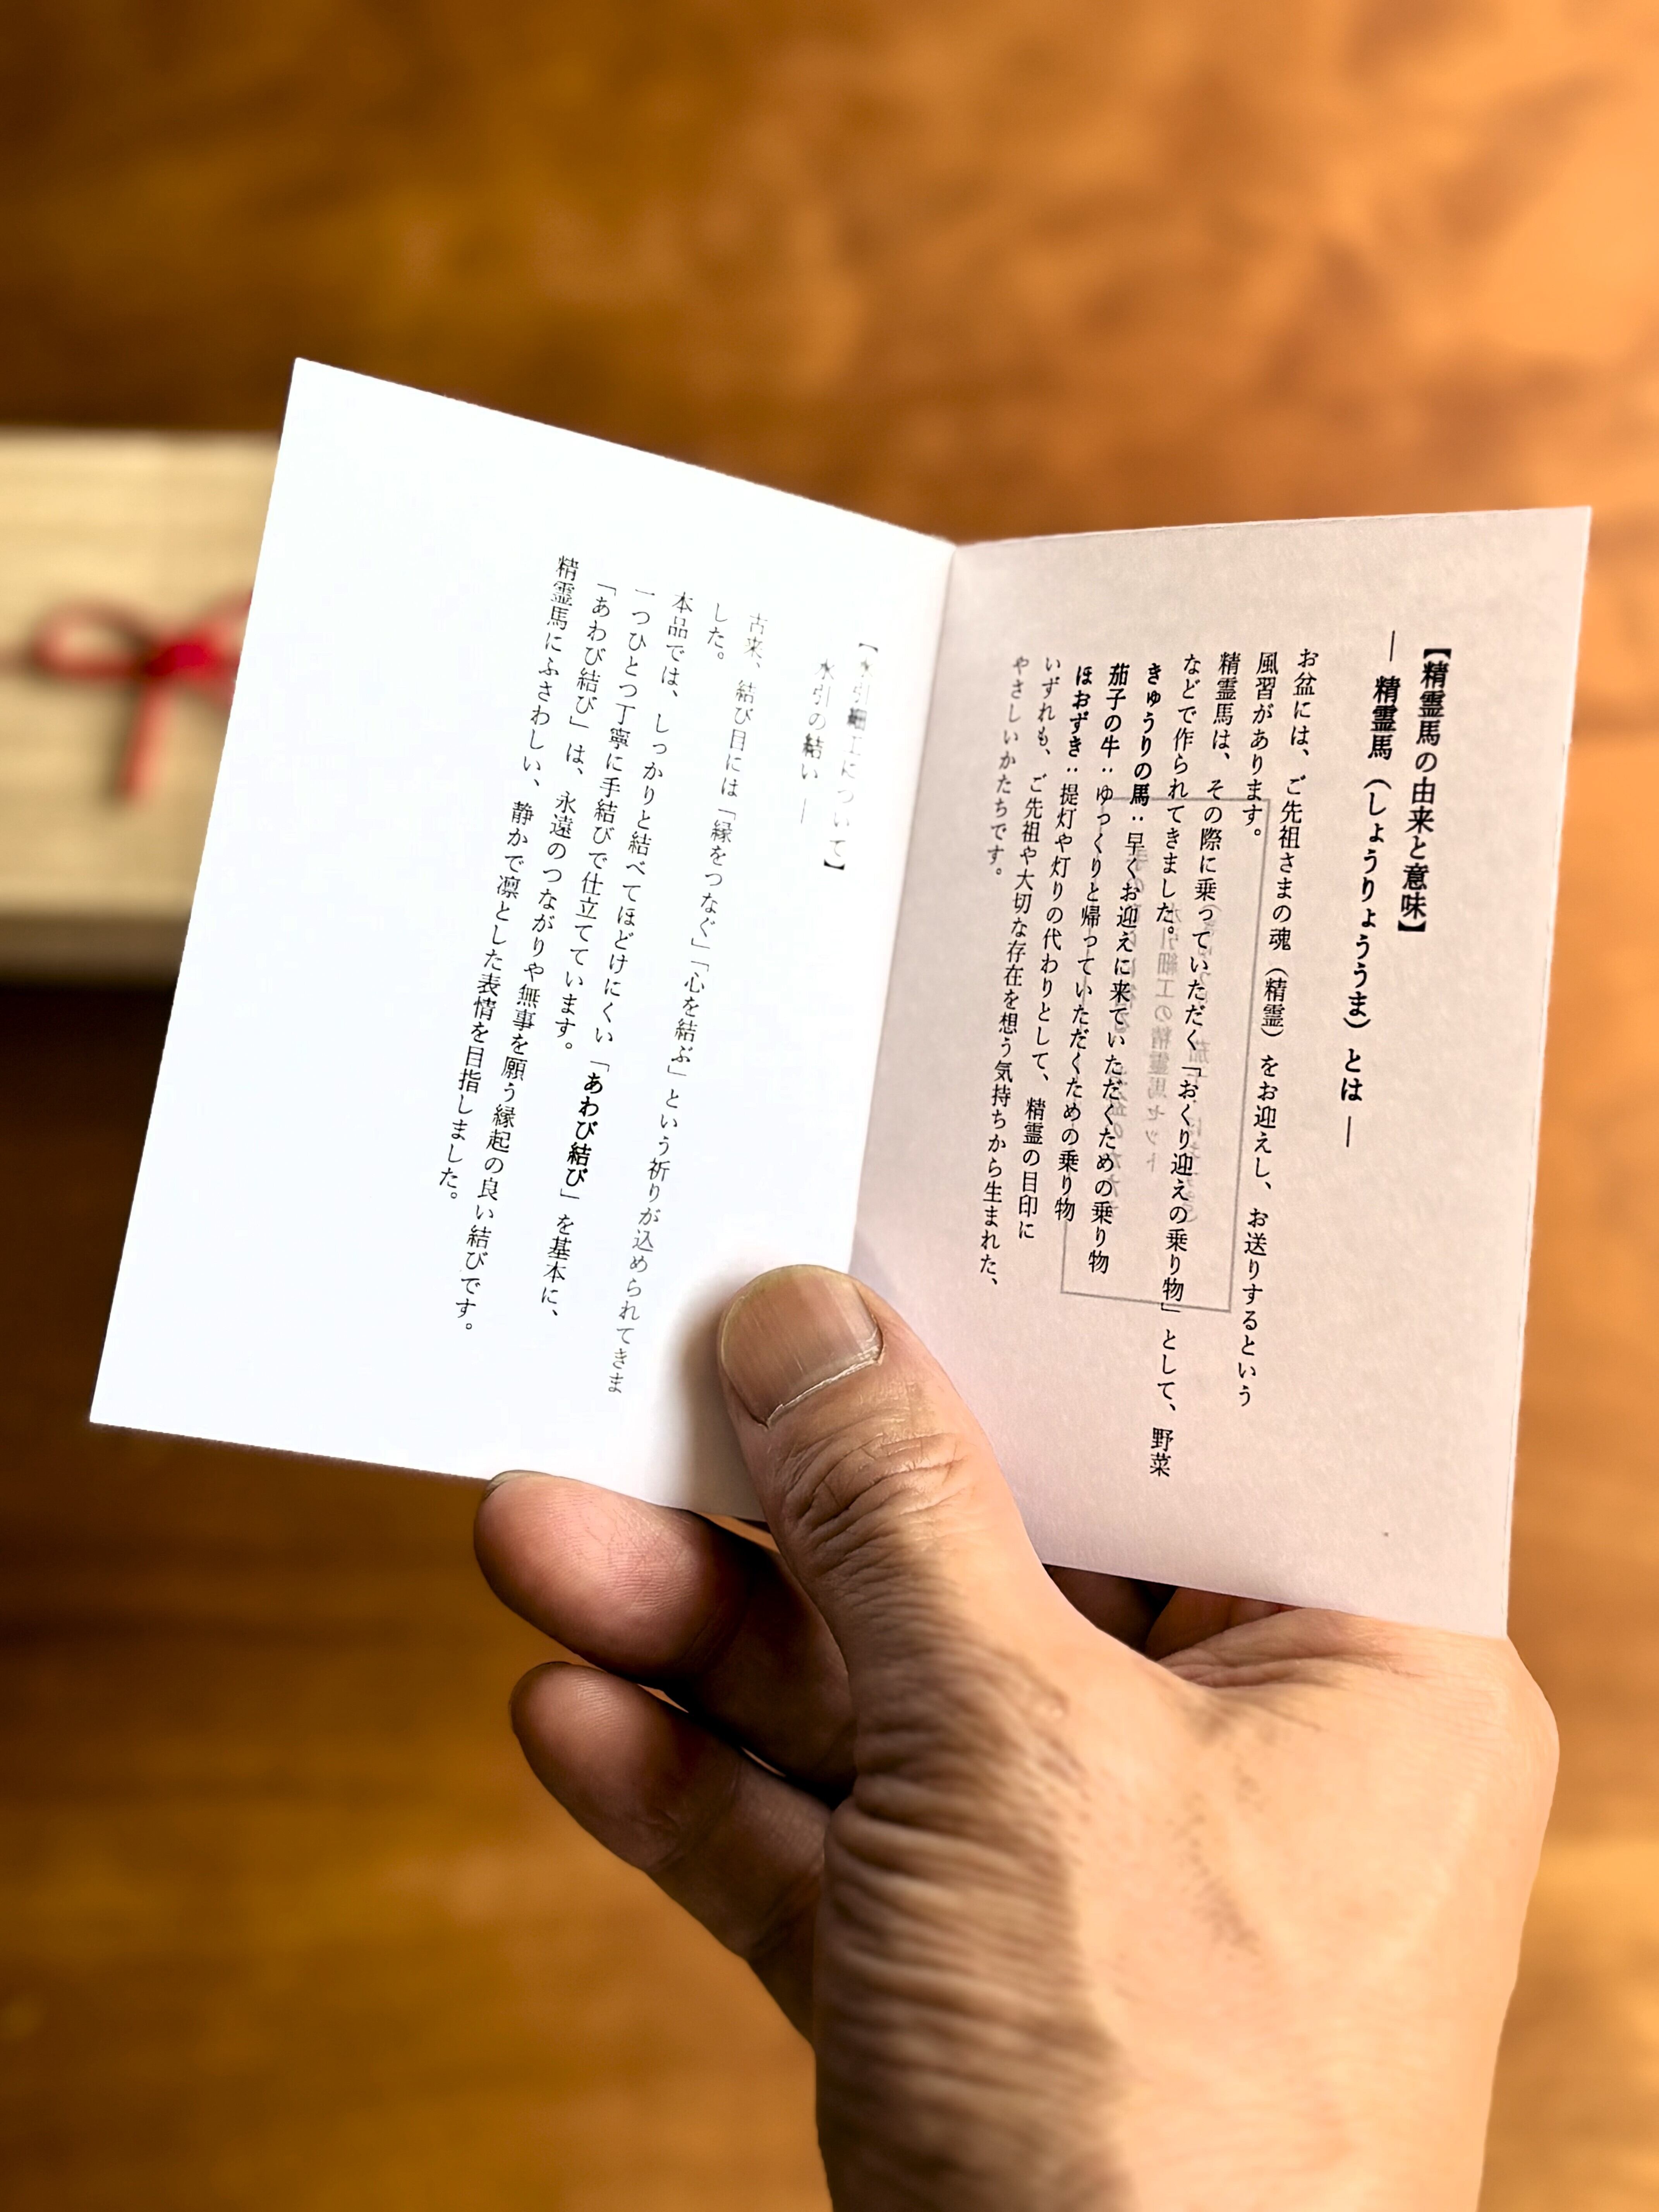 【精霊馬の由来と意味】
― 精霊馬（しょうりょううま）とは ―
お盆には、ご先祖さまの魂（精霊）をお迎えし、お送りするという
風習があります。
精霊馬は、その際に乗っていただく「おくり迎えの乗り物」として、野菜
などで作られてきました。
きゅうりの馬：早くお迎えに来ていただくための乗り物
茄子の牛：ゆっくりと帰っていただくための乗り物
ほおずき：提灯や灯りの代わりとして、精霊の目印に
いずれも、ご先祖や大切な存在を想う気持ちから生まれた、
やさしいかたちです。
【水引細工について】
水引の結い ―
古来、結び目には「縁をつなぐ」「心を結ぶ」という祈りが込められてきま
した。
本品では、しっかりと結べてほどけにくい「あわび結び」を基本に、
一つひとつ丁寧に手結びで仕立てています。
「あわび結び」は、永遠のつながりや無事を願う縁起の良い結びです。
精霊馬にふさわしい、静かで凛とした表情を目指しました。
水引細工の精霊馬セット